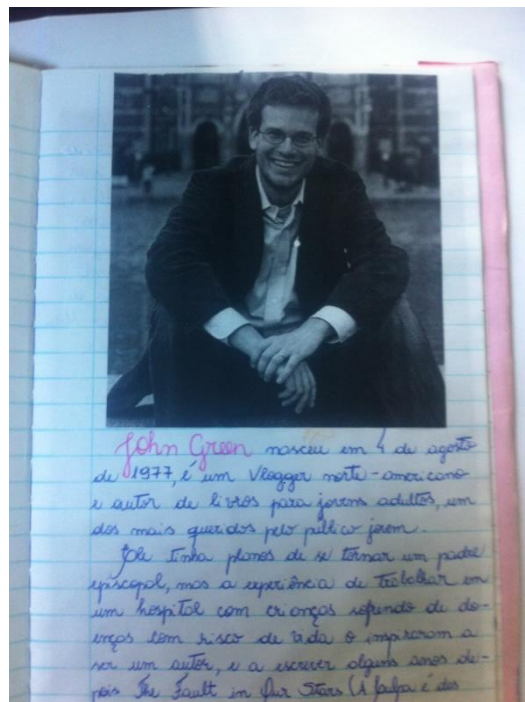 John Green nasceu em 4 de agosto
de 1977, é um Vlogger norte-americano
e autor de livros para jovens adultos, um
dos mais queridos pelo público jovem.
Ele tinha planos de se tornar um padre
episcopal, mas a experiência de trabalhar em
um hospital com crianças sofrendo de do-
enças com risco de vida o inspiraram a
ser um autor, e a escrever alguns anos de-
pois The Fault in Our Stars (A Culpa é das